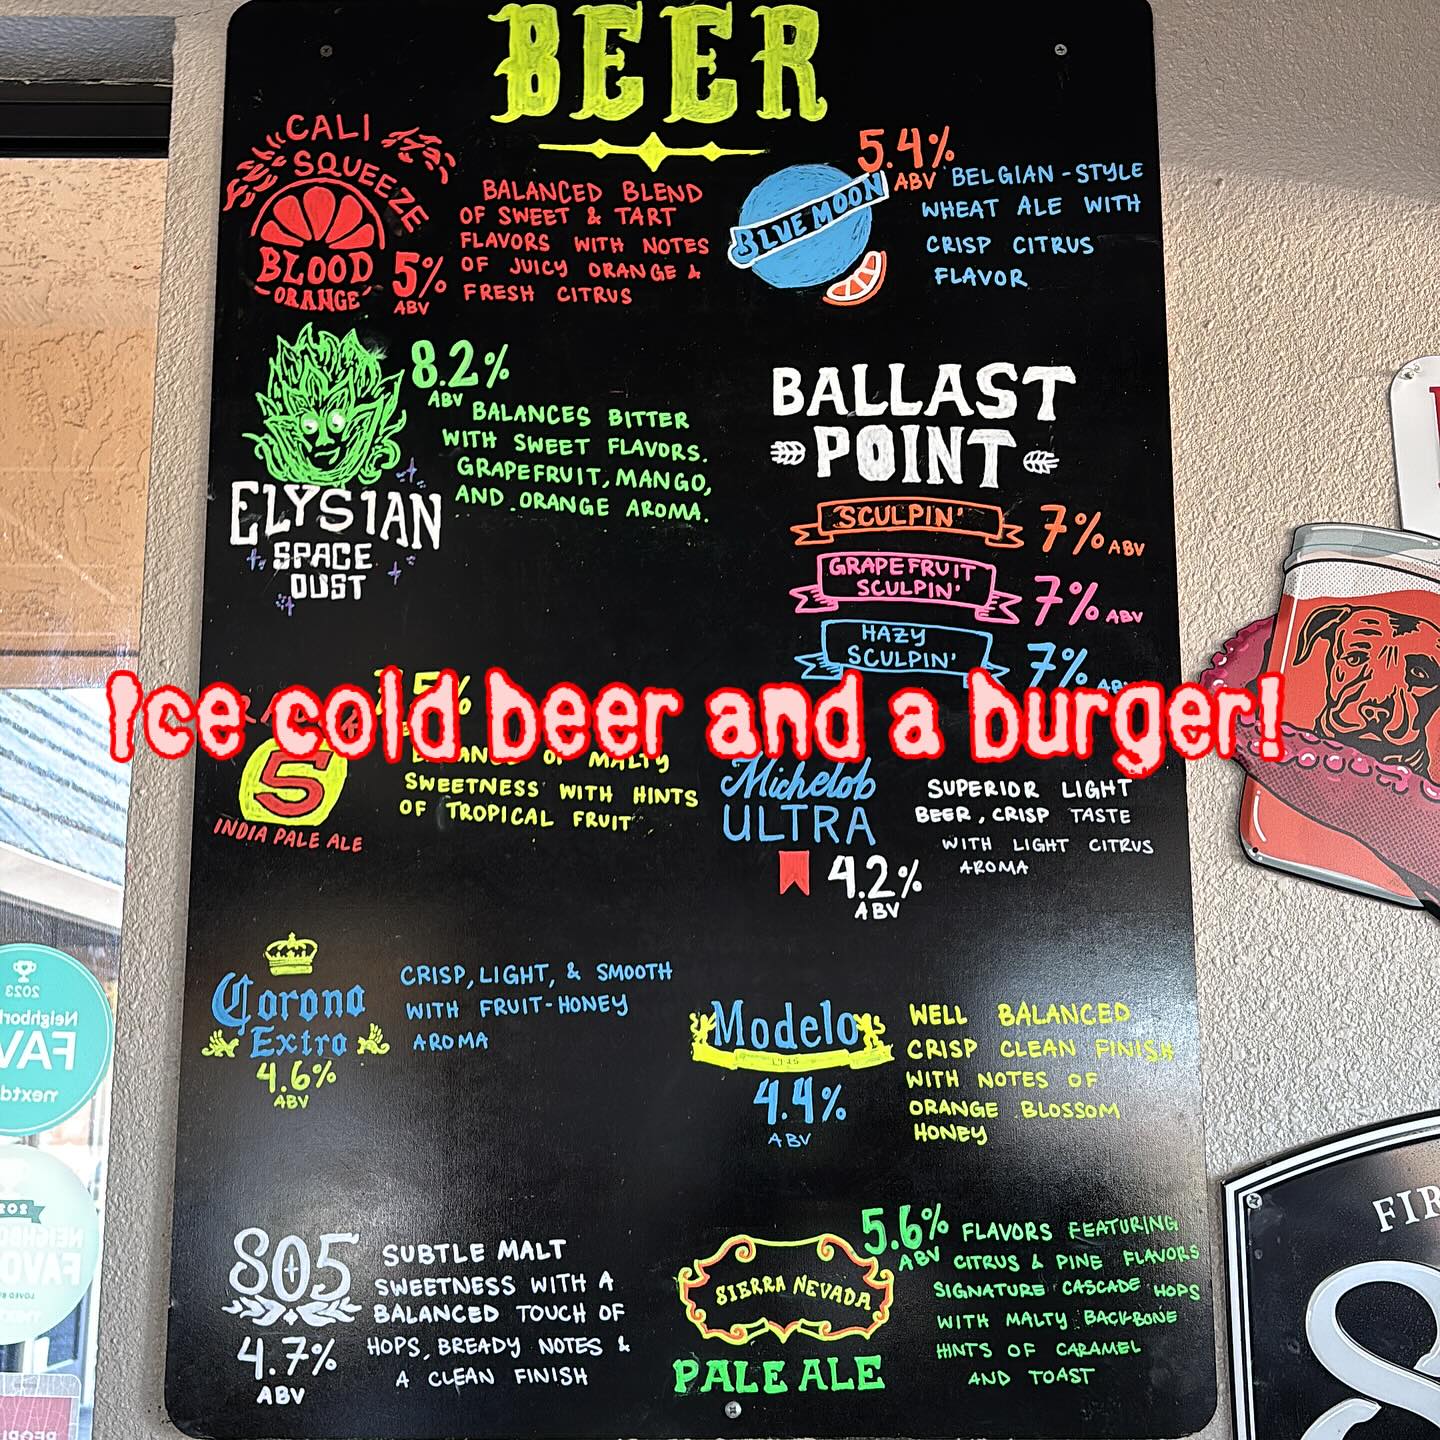 BEER
CALI
SQUEEZE
BLOOD
ORANGE
5%
ABV
BALANCED BLEND
OF SWEET & TART
FLAVORS WITH NOTES
OF JUICY ORANGE &
FRESH CITRUS
BLUE MOON
5.4%
ABV
BELGIAN-STYLE
WHEAT ALE WITH
CRISP CITRUS
FLAVOR
ELYSIAN
SPACE
DUST
8.2%
ABV
BALANCES BITTER
WITH SWEET FLAVORS.
GRAPEFRUIT, MANGO,
AND ORANGE AROMA.
BALLAST
POINT
SCULPIN'
7% ABV
GRAPEFRUIT
SCULPIN'
7% ABV
HAZY
SCULPIN'
7%
Ice cold beer and a burger!
5
INDIA PALE ALE
OF MALTY
SWEETNESS WITH HINTS
OF TROPICAL FRUIT
Michelob
ULTRA
4.2%
ABV
SUPERIOR LIGHT
BEER, CRISP TASTE
WITH LIGHT CITRUS
AROMA
Corona
Extra
4.6%
ABV
CRISP, LIGHT, & SMOOTH
WITH FRUIT-HONEY
AROMA
Modelo
4.4%
ABV
WELL BALANCED
CRISP CLEAN FINISH
WITH NOTES OF
ORANGE BLOSSOM
HONEY
805
4.7%
ABV
SUBTLE MALT
SWEETNESS WITH A
BALANCED TOUCH OF
HOPS, BREADY NOTES &
A CLEAN FINISH
SIERRA NEVADA
PALE ALE
5.6%
ABV
FLAVORS FEATURING
CITRUS & PINE FLAVORS
SIGNATURE CASCADE HOPS
WITH MALTY BACKBONE
HINTS OF CARAMEL
AND TOAST
2023
FIR